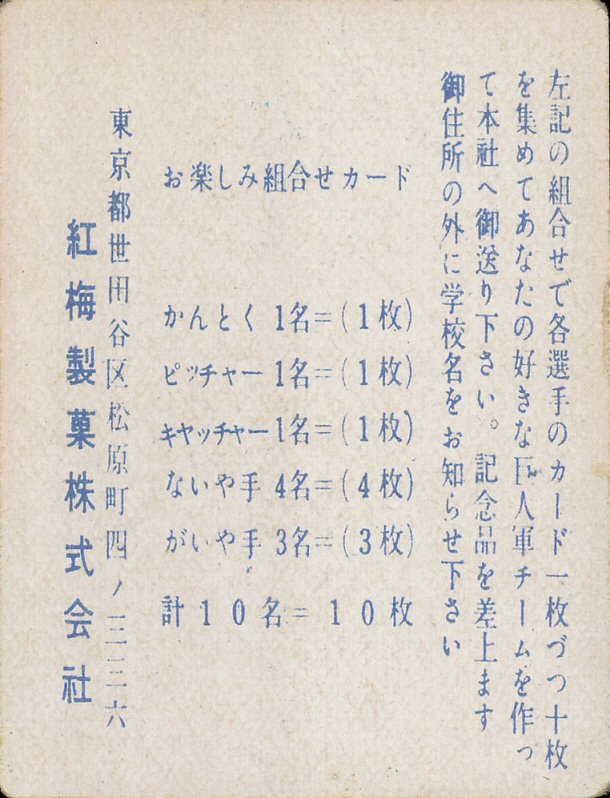 左記の組合せで各選手のカード一枚づつ十枚
を集めてあなたの好きな巨人軍チームを作っ
て本社へ御送り下さい。記念品を差上ます
御住所の外に学校名をお知らせ下さい
お楽しみ組合せカード
かんとく 1名=(1枚)
ピッチャー 1名=(1枚)
キャッチャー 1名=(1枚)
ないや手 4名=(4枚)
がいや手 3名=(3枚)
計10名=10枚
東京都世田谷区松原町四ノ三三六
紅梅製菓株式会社